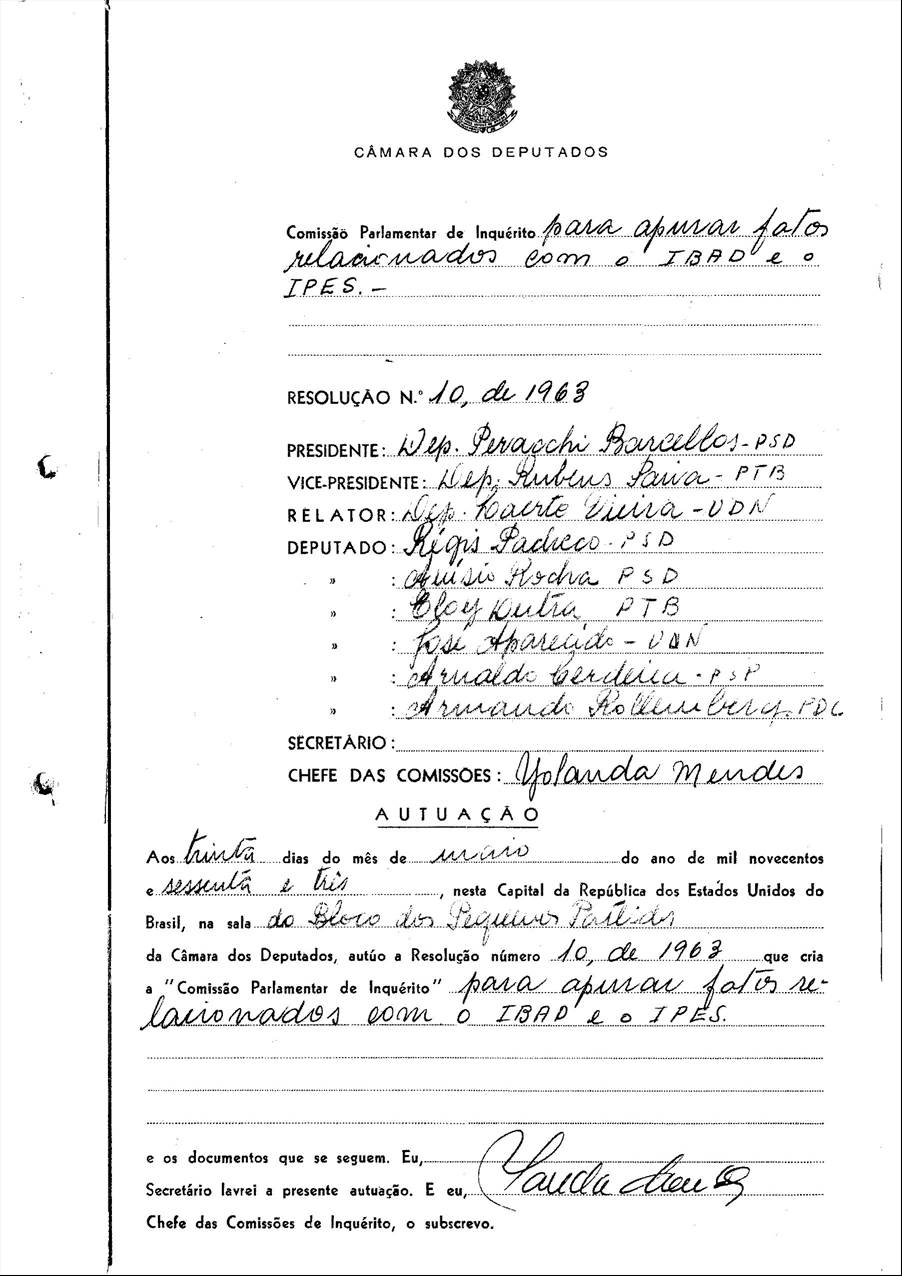 CÂMARA DOS DEPUTADOS
Comissão Parlamentar de Inquérito para apurar fatos
relacionados com o IBAD e o
IPES. -
RESOLUÇÃO N.º 10, de 1963
PRESIDENTE: Dep. Peracchi Barcellos - PSD
VICE-PRESIDENTE: Dep. Rubens Paiva - PTB
RELATOR: Dep. Laerte Vieira - UDN
DEPUTADO: Régis Pacheco - PSD
" : Aluísio Rocha PSD
" : Eloy Dutra PTB
" : José Aparecido - UDN
" : Arnaldo Cerdeira - PSP
" : Armando Rollemberg. PDC
SECRETÁRIO:
CHEFE DAS COMISSÕES: Yolanda Mendes
AUTUAÇÃO
Aos trinta dias do mês de maio do ano de mil novecentos
e sessenta e três, nesta Capital da República dos Estados Unidos do
Brasil, na sala do Bloco dos Pequenos Partidos
da Câmara dos Deputados, autúo a Resolução número 10, de 1963 que cria
a "Comissão Parlamentar de Inquérito" para apurar fatos re-
lacionados com o IBAD e o IPES.
e os documentos que se seguem. Eu,
Secretário lavrei a presente autuação. E eu,
Chefe das Comissões de Inquérito, o subscrevo.